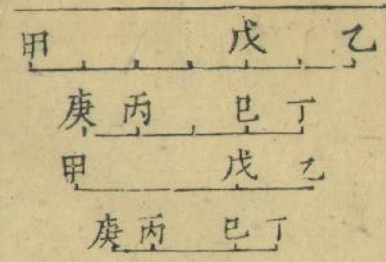 甲 戊 乙
庚 丙 巳 丁
甲 戊 乙
庚 丙 巳 丁